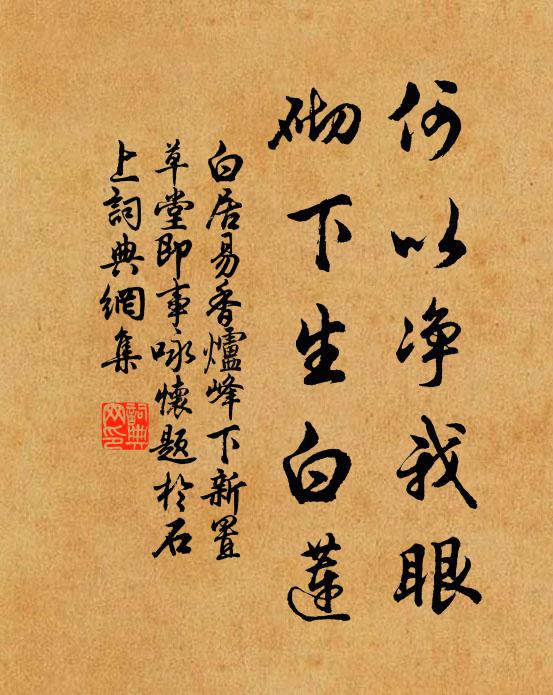 何以净我眼
砌下生白蓮
白居易香爐峰下新置
草堂即事咏懷題於石
上詞典網集
詞典網印